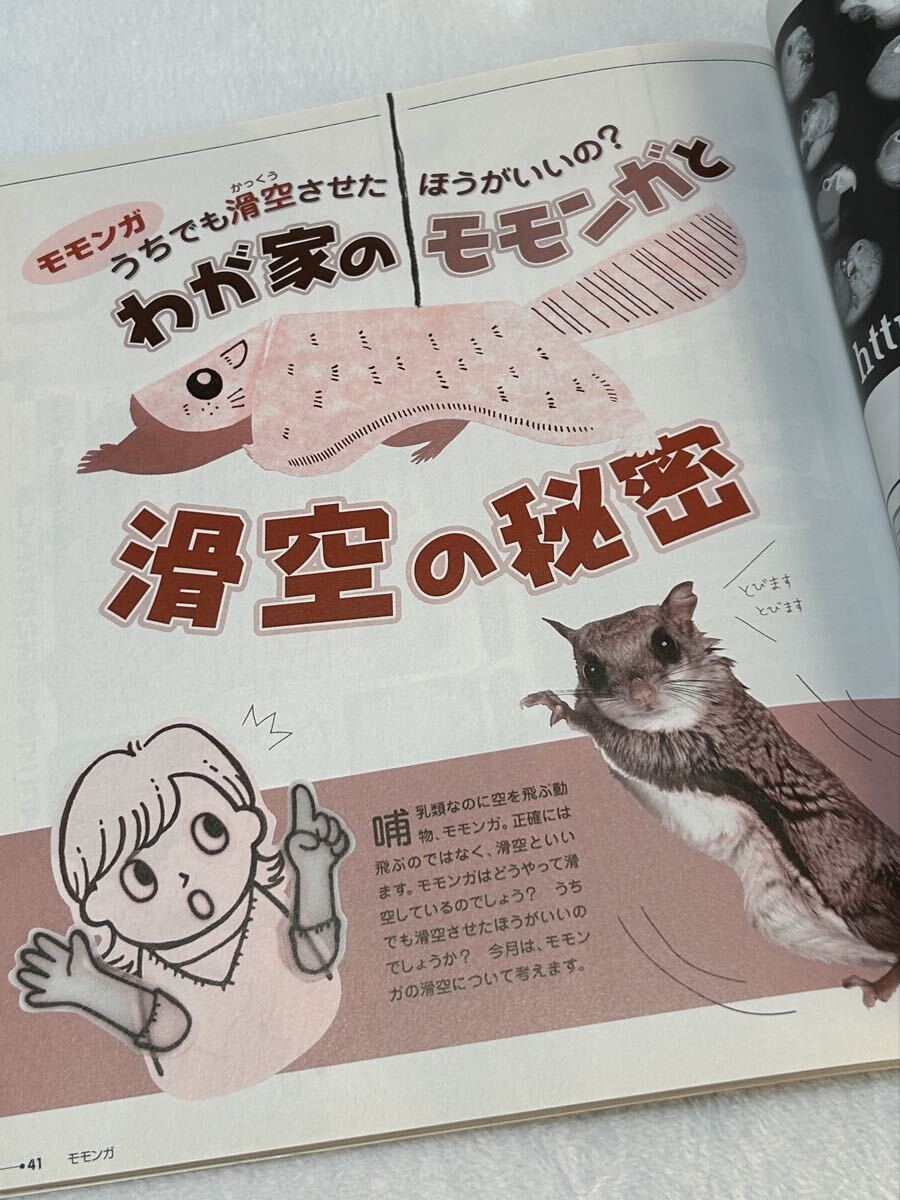 モモンガ
うちでも滑空させた ほうがいいの?
かっくう
わが家の モモンガと
滑空の秘密
とびます
とびます
哺乳類なのに空を飛ぶ動
物、モモンガ。正確には
飛ぶのではなく、滑空といい
ます。モモンガはどうやって滑
空しているのでしょう? うち
でも滑空させたほうがいいの
でしょうか? 今月は、モモン
ガの滑空について考えます。
41 モモンガ
htt